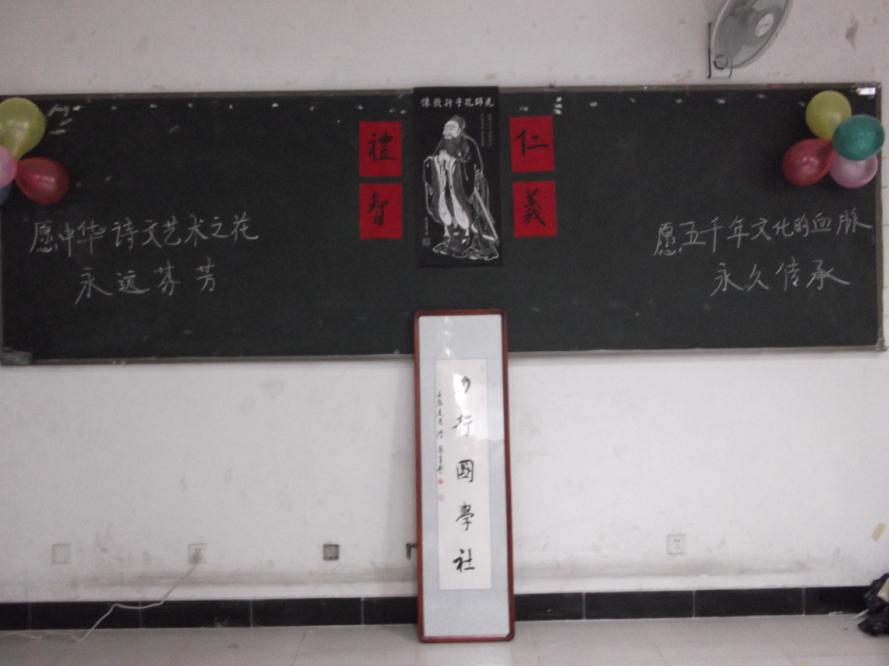 先師孔子行教像
禮
智
仁
義
愿中华诗文艺术之花
永远芬芳
愿五千年文化的血脉
永久传承
力行國學社